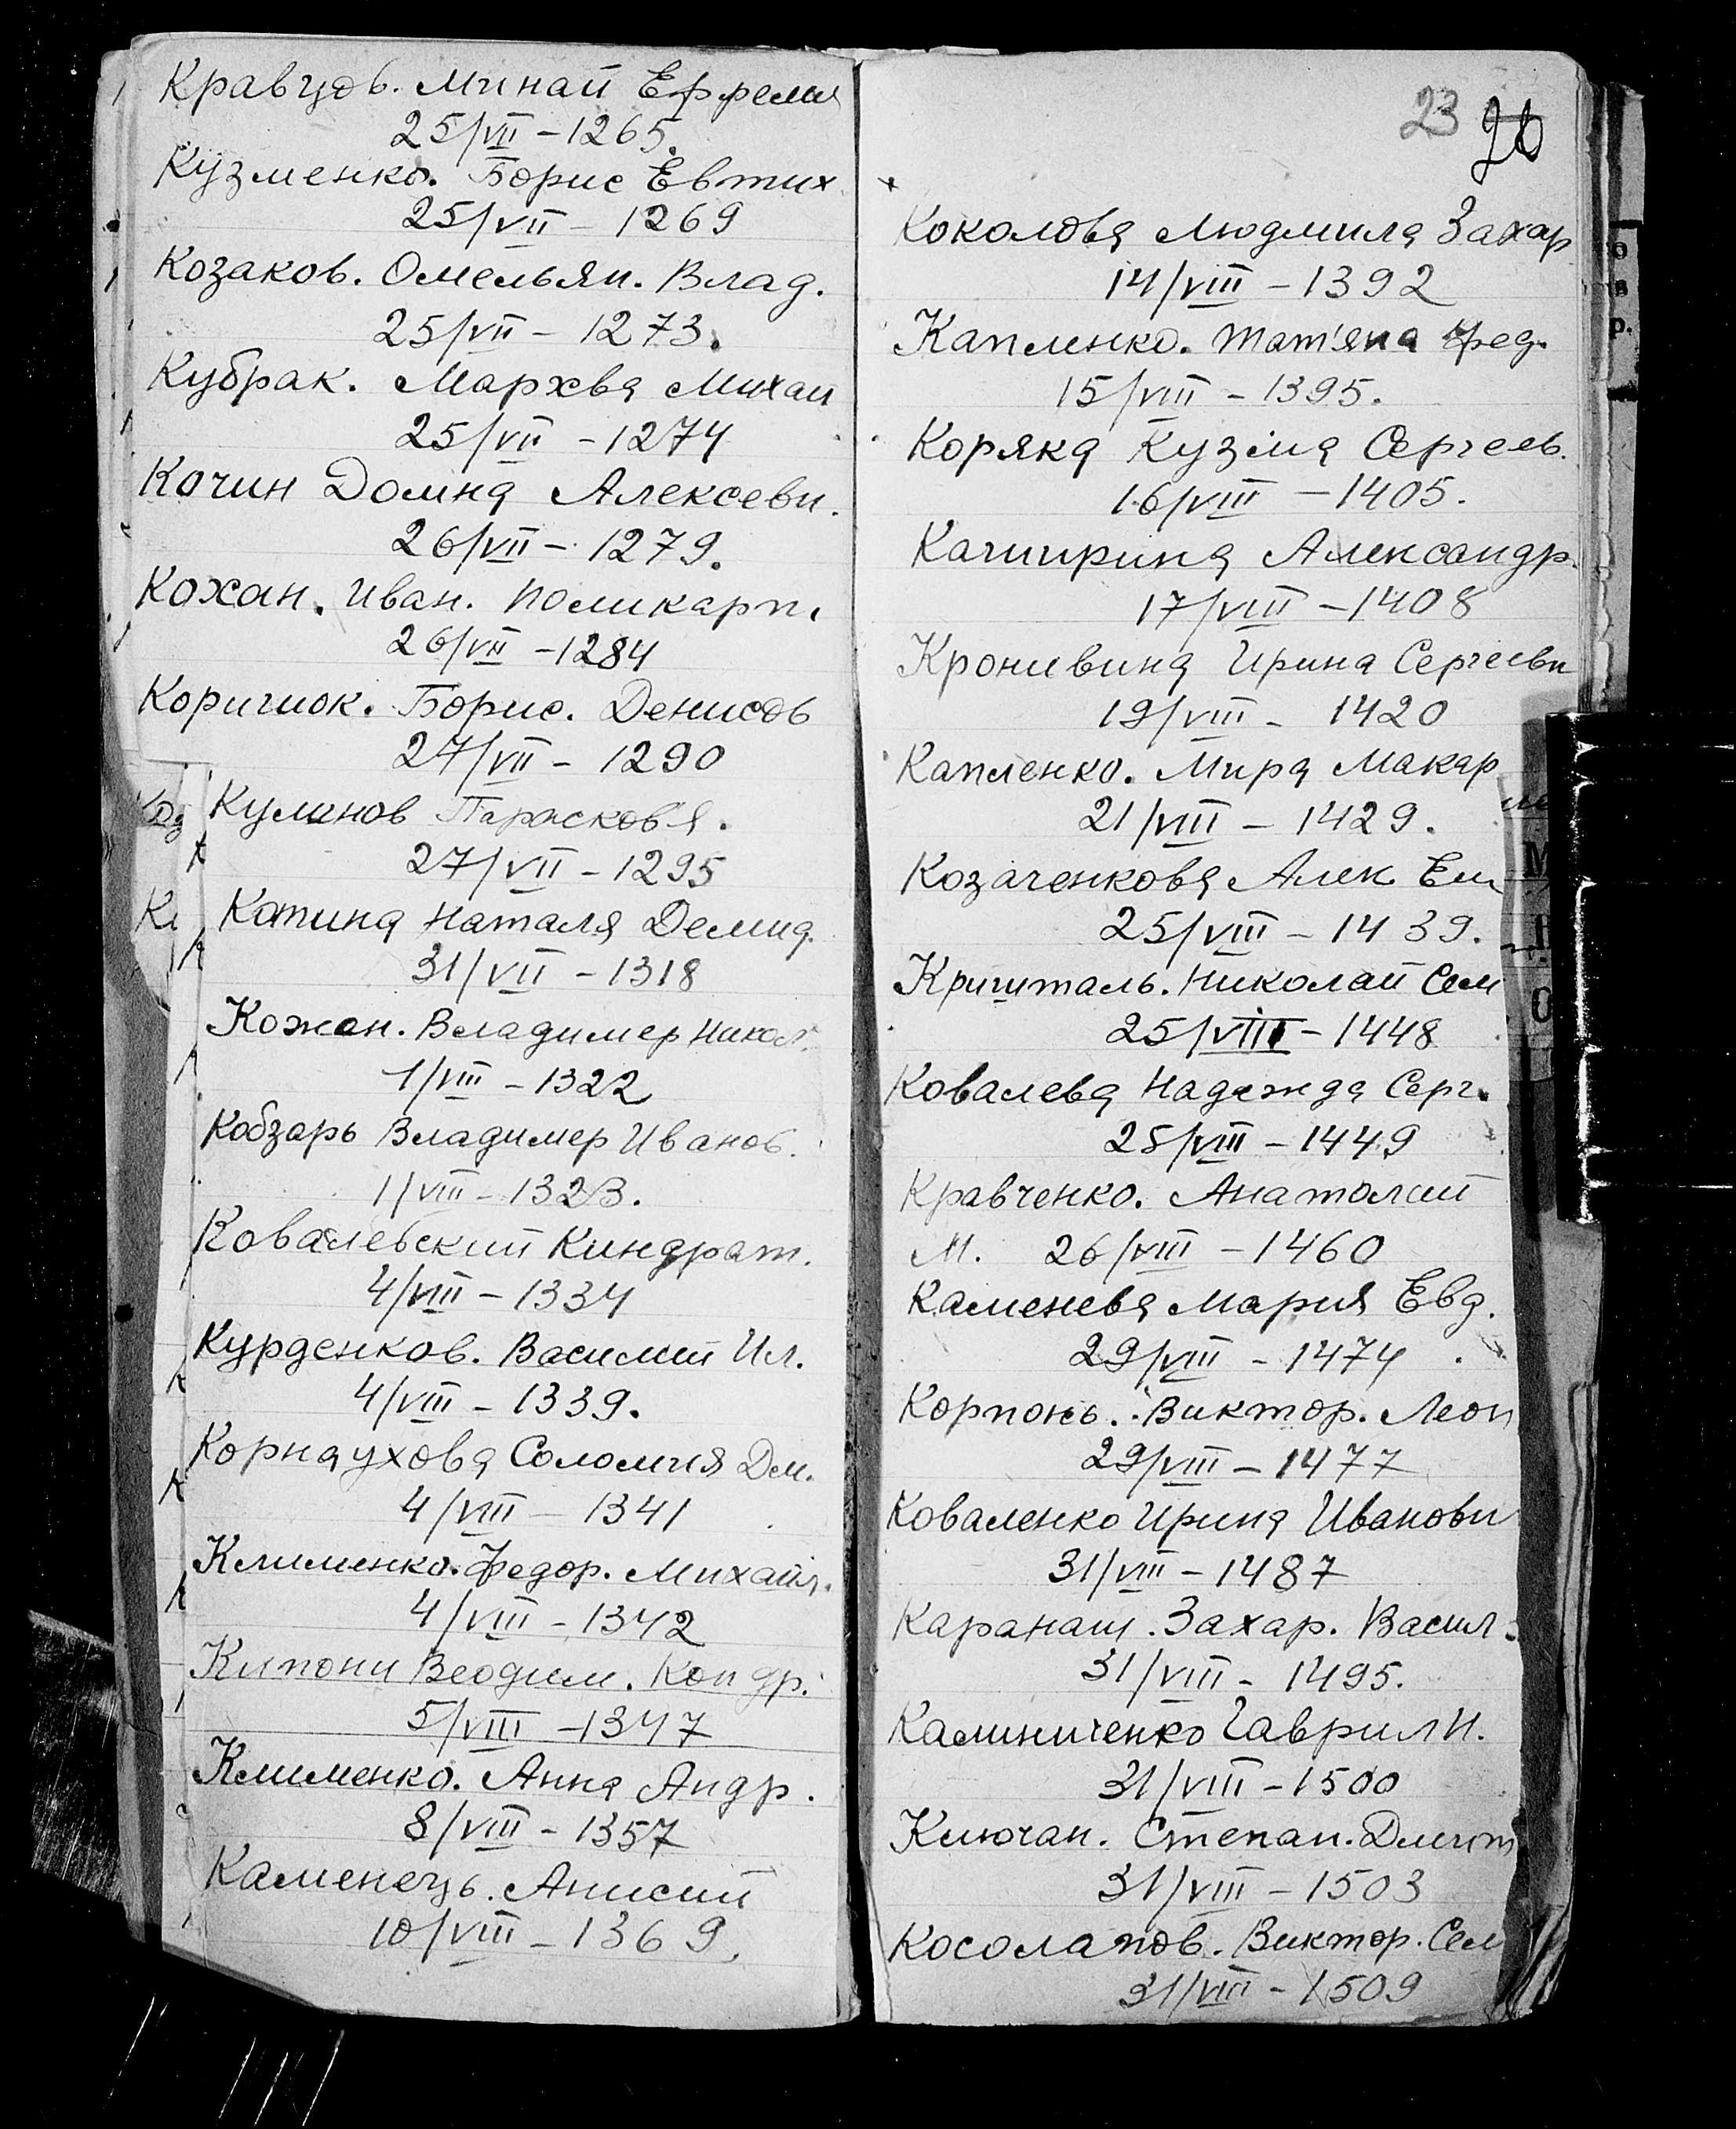 Кравцов. Минай Ефреми
25/VII - 1265.
Кузменко. Борис Евтих
25/VII - 1269
Козаков. Омельян. Влад.
25/VII - 1273.
Кубрак. Мархва Михаи
25/VII - 1274
Кочин Домна Алексеви.
26/VII - 1279.
Кохан. Иван. Поликарп.
26/VII - 1284
Коричиок. Борис. Денисов
27/VII - 1290
Кулинов Парасковя.
27/VII - 1295
Копина Наталя Демид.
31/VII - 1318
Кожан. Владимер Никол.
1/VIII - 1322
Кобзарь Владимер Иванов.
1/VIII - 1323.
Ковалевский Киндрат.
4/VIII - 1334
Курденков. Василий Ил.
4/VIII - 1339.
Корнаухова Соломия Дм.
4/VIII - 1341
Клименко. Федор. Михайл.
4/VIII - 1342
Кипони Веодим. Кондр.
5/VIII - 1347
Клименко. Анна Андр.
8/VIII - 1357
Каменець. Анисий
10/VIII - 1369.
23 26
Коколова Людмила Захар
14/VIII - 1392
Капленко. Мат'яна Фед.
15/VIII - 1395.
Коряка Кузма Сергеев.
16/VIII - 1405.
Качирина Александр.
17/VIII - 1408
Кронивина Ирина Сергеевн
19/VIII - 1420
Капленко. Мира Макар
21/VIII - 1429.
Козаченкова Алек Ем
25/VIII - 1439.
Кришталь. Николай Сем
25/VIII - 1448
Ковалева Надежда Серг.
25/VIII - 1449
Кравченко. Анатолий
М. 26/VIII - 1460
Каменева Мария Евд.
29/VIII - 1474
Корпонь. Виктор. Леон
29/VIII - 1477
Коваленко Ирина Ивановн
31/VIII - 1487
Каранаш. Захар. Васил.
31/VIII - 1495.
Калиниченко Гаврил И.
31/VIII - 1500
Ключан. Степан. Дмит
31/VIII - 1503
Косолапов. Виктор. Сем
31/VIII - 1509